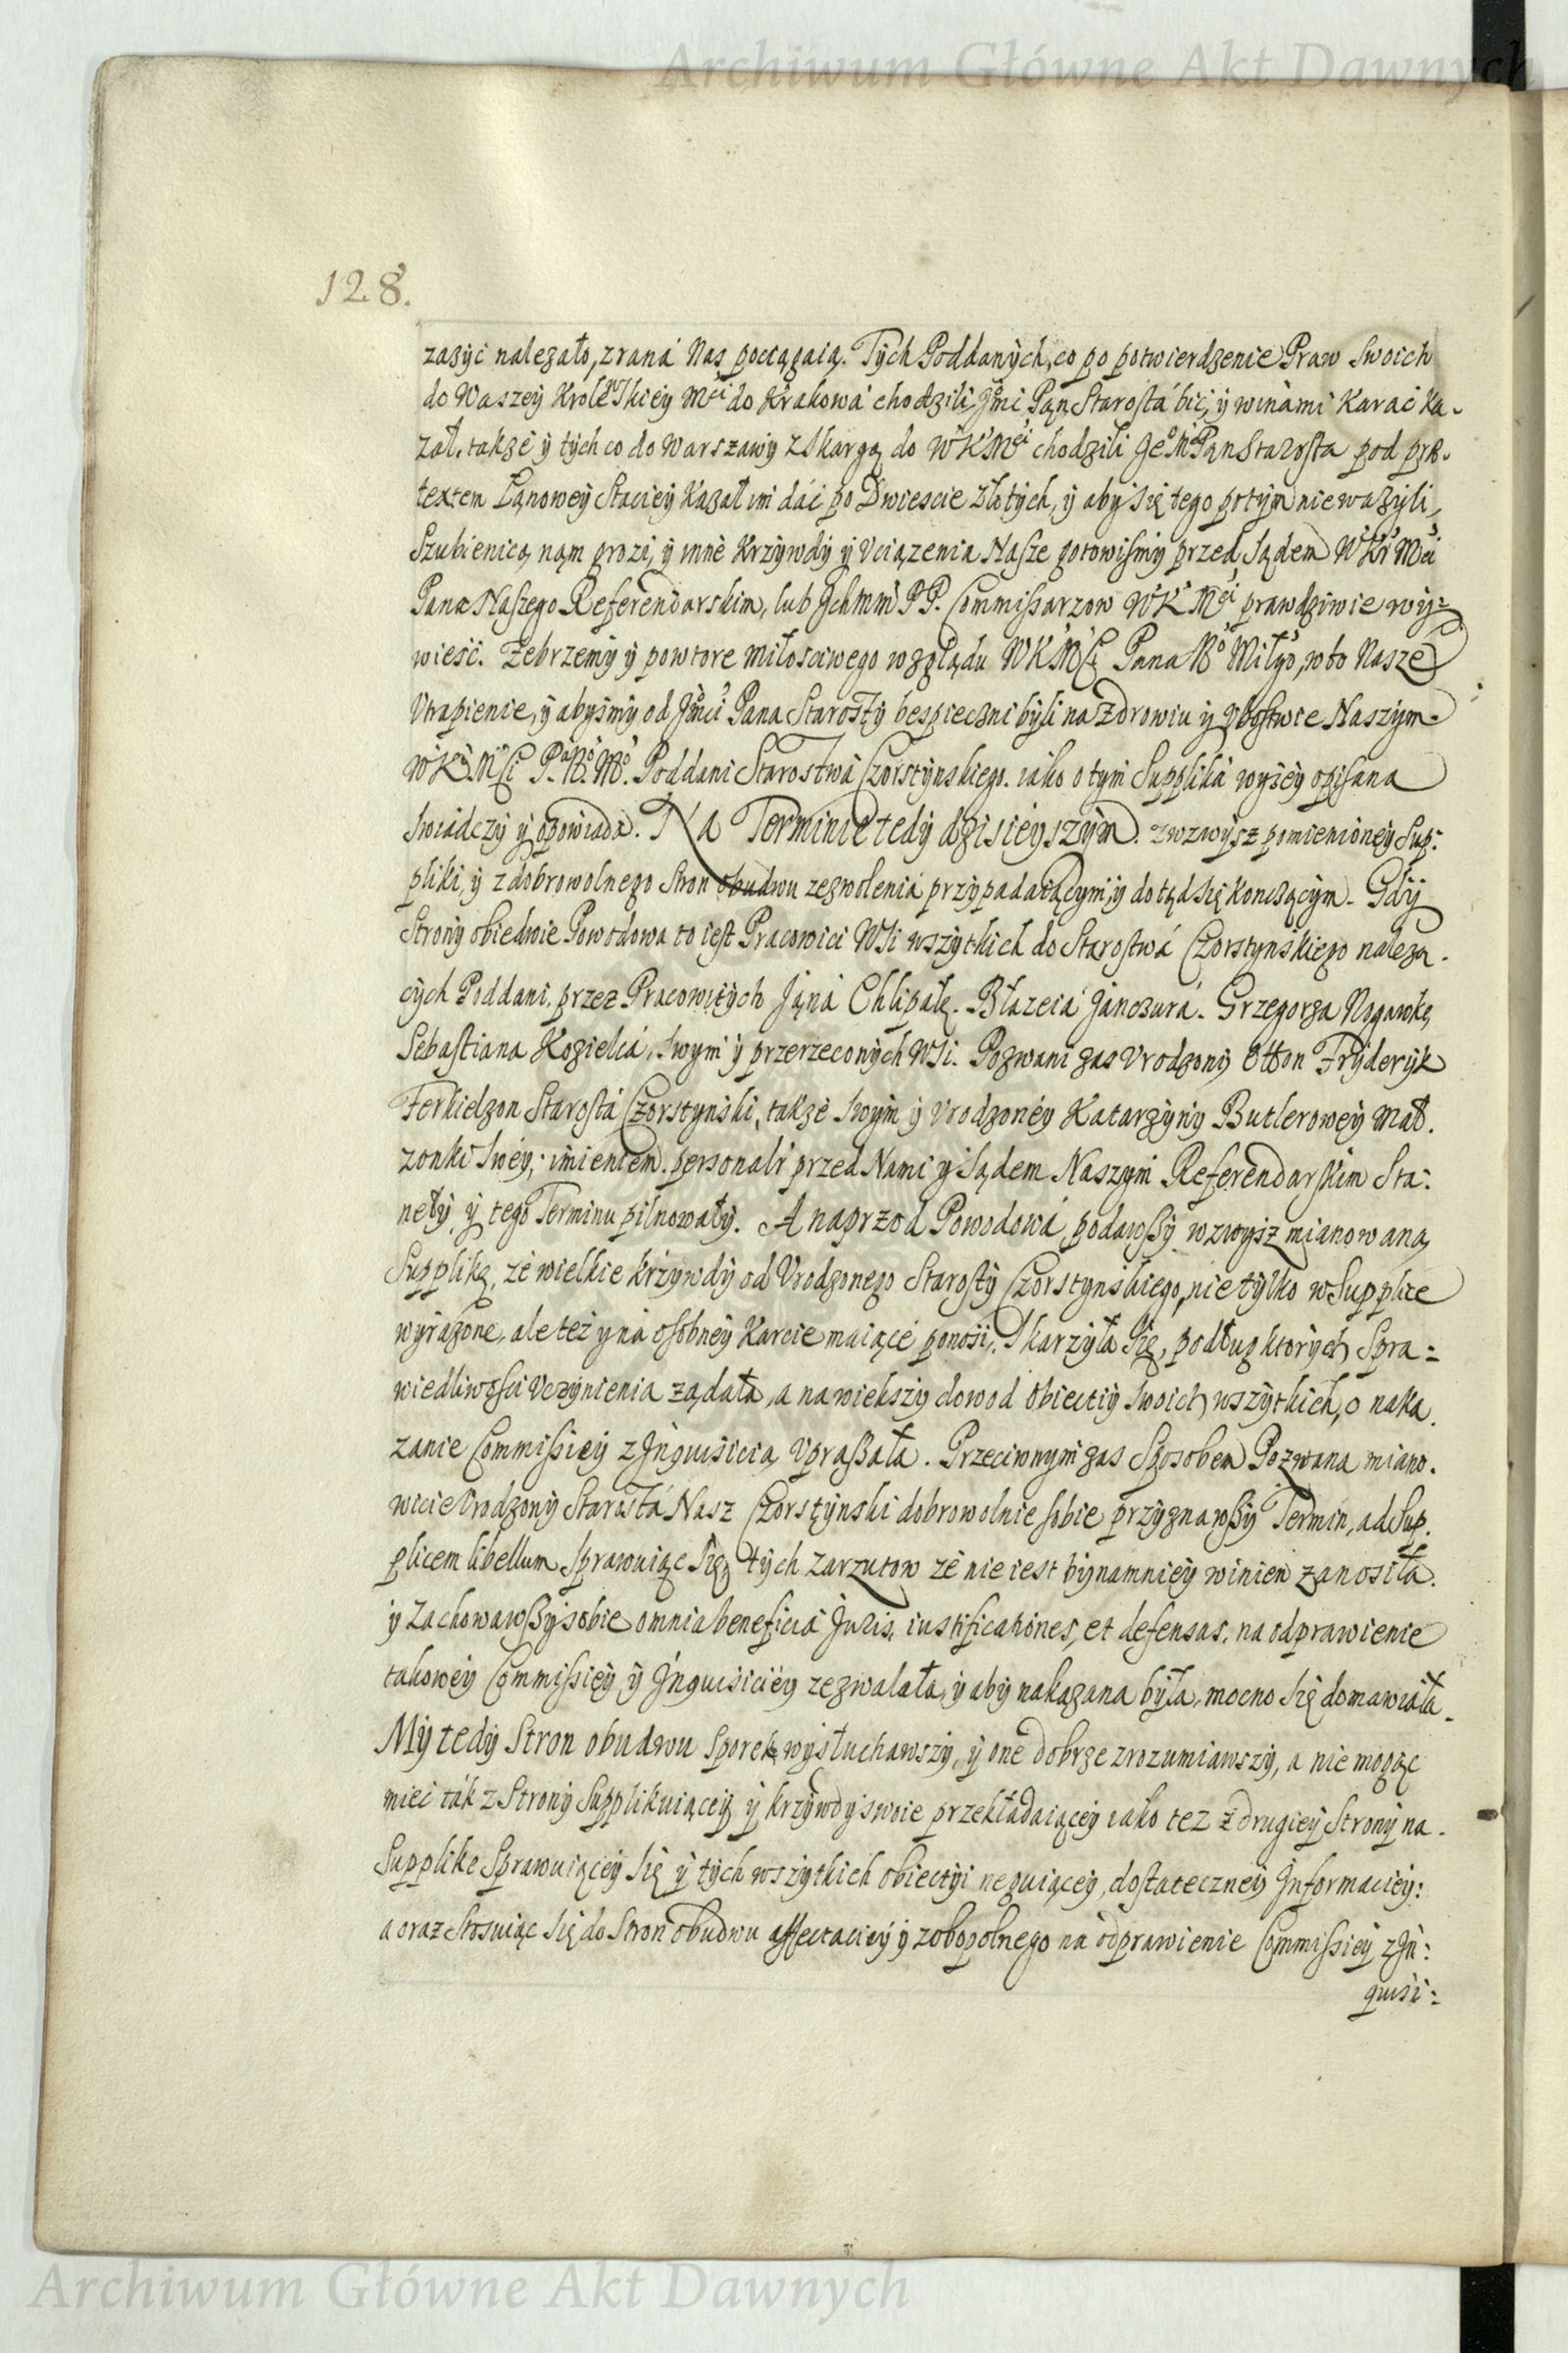 Archiwum Główne Akt Dawnych
128.
zażyć należało, z raná Nas pociągaią. Tych Poddanych, co po potwierdzenie Praw Swoich
do Waszey Krolewskiey Mci do Krakowá chodzili, Jmci Pan Starostá bić, y winámi Karać ka-
zał, takze y tych co do Warszawy z skargą do WKMci chodzili Jeo Mo Pan Starosta pod prae-
textem Łanowey Staciey Kazał im dáć po Dwiescie złotych, y aby się tego potym nie wazyli,
Szubienicą nam grozi, y inné Krzywdy y Uciązenia Nasze gotowismy przed Sądem WKr Mci
Pana Naszego Referendarskim, lub Jchmm PP. Commissarzow WK Mci prawdziwie wy=
wieść. Zebrzemy y powtore miłosciwego względu WKMCi Pana No Miłgo, w to Nasze
Utrapienie, y abyśmy od Jmci Pana Starosty bespieczni byli na Zdrowiu y Ubostwie Naszym.
WKMCi P. N. M. Poddani Starostwá Czorstynskiego. iako o tym Supplika wyzey opisana
Swiadczy y opowiada. Na Terminie tedy dzisieyszym. z wzwysz pomienioney Sup:
pliki, y z dobrowolnego Stron obudwu zezwolenia przypadaiącym, y dotąd się kończącym. Gdy
Strony obiedwie Powodowa to iest Pracowici WSi wszytkich do Starostwá Czorstynskiego należą-
cych Poddani, przez Pracowitych Janá Chlipałę. Błazeiá Janczurá. Grzegorza Nogawkę
Sebastiana Kozielcá, swym y przerzeconych WSi. Pozwani zas Urodzony Otton Fryderyk
Ferkielzon Starostá Czorstynski, takze swym y Urodzoney Katarzyny Butlerowey Mał-
zonki Swey, imieniem. personali przed Nami y Sądem Naszym Referendarskim Sta:
neły y tego Terminu pilnowały. A naprzod Powodowá, podawszy wzwysz mianowaną
Supplikę, ze wielkie krzywdy od Urodzonego Starosty Czorstynskiego, nie tylko w Supplice
wyrazone, ale tez y ná osobney Karcie maiące ponosi, Skarzyła Się, podług ktorych Spra=
wiedliwości Uczynienia ządała, a na wiekszy dowod Obiectiy Swoich wszytkich, o naka-
zanie Commissiey z Jnquisicią Upraszała. Przeciwnym zas Sposobem Pozwana miano-
wicie Urodzony Starostá Nasz Czorstynski dobrowolnie sobie przyznawszy Termin, ad Sup-
plicem libellum Sprawuiąc Się, tych zarzutow ze nie iest bynamniey winien zanosiła.
y zachowawszy sobie omnia beneficiá Juris, iustificationes, et defensas, na odprawienie
takowey Commissiey y Jnquisiciey zezwalała, y aby nakazana była, mocno Się domawiała.
My tedy Stron obudwu Sporek wysłuchawszy, y one dobrze zrozumiawszy, a nie mogąc
mieć ták z Strony Supplikuiącey y krzywdy swoie przekładaiącey iako tez z drugiey Strony na-
Supplike Sprawuiącey Się y tych wszytkich obiectyi neguiącey, dostateczney Jnformaciey:
a oraz Stosuiąc Się do Stron obudwu affectaciey y zobopolnego ná odprawienie Commissiey z Jn:
quisi:
Archiwum Główne Akt Dawnych